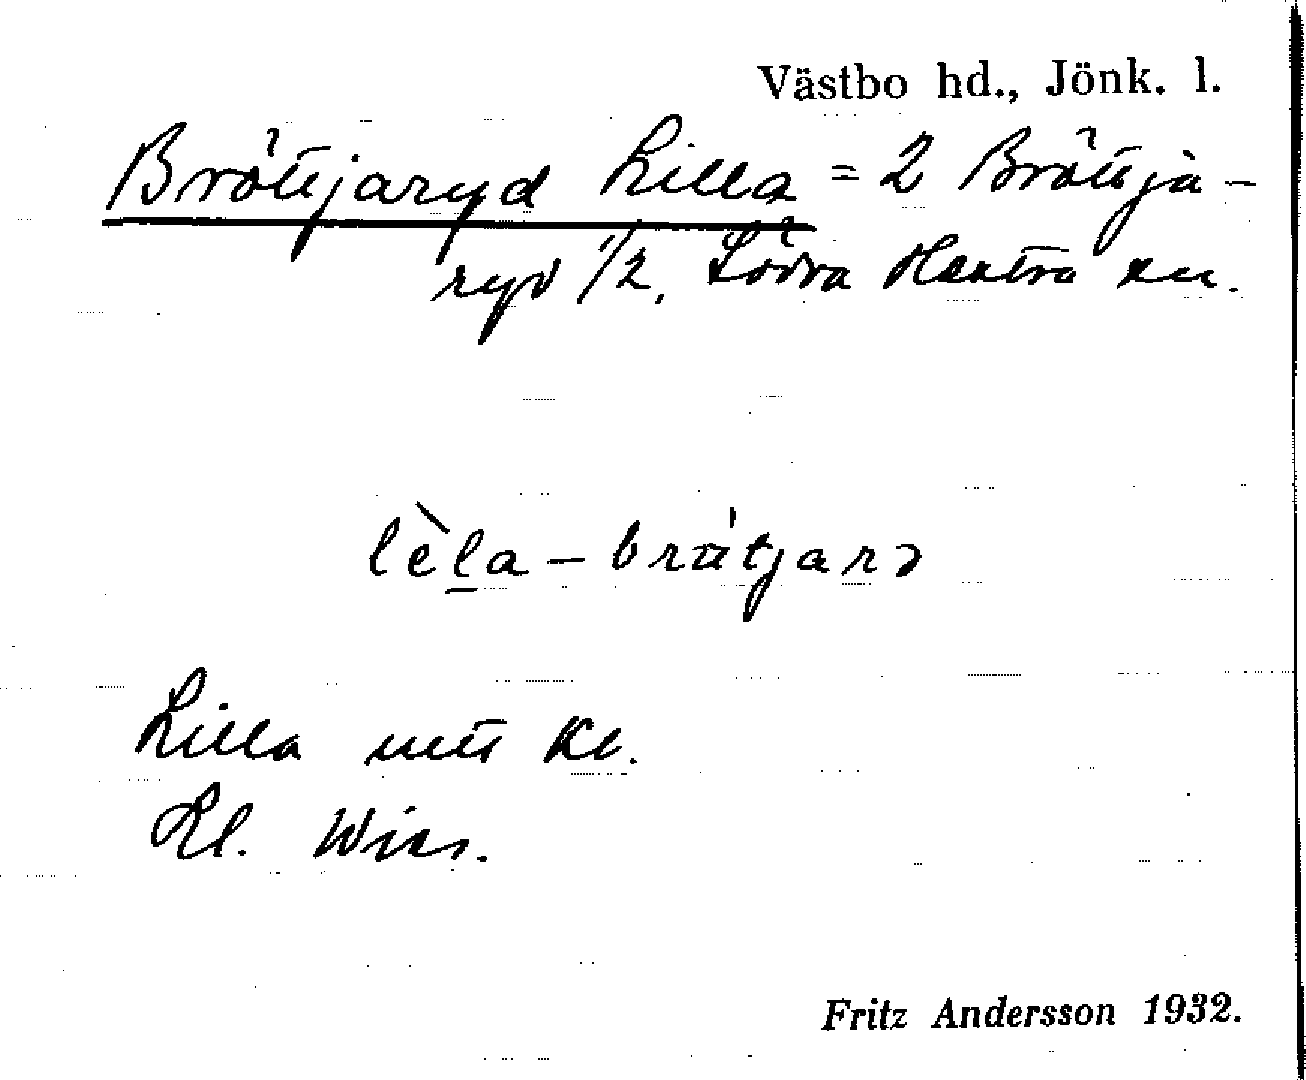 Västbo hd., Jönk. l.
Bröttjaryd Lilla = 2 Bröttja-
ryd 1/2. Södra Hestra sn.
lèla - brötjarə
Lilla utt Kl.
Kl.
Fritz Andersson 1932.